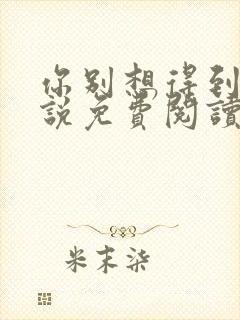 你别想得到
說免費閱讀
米末柒